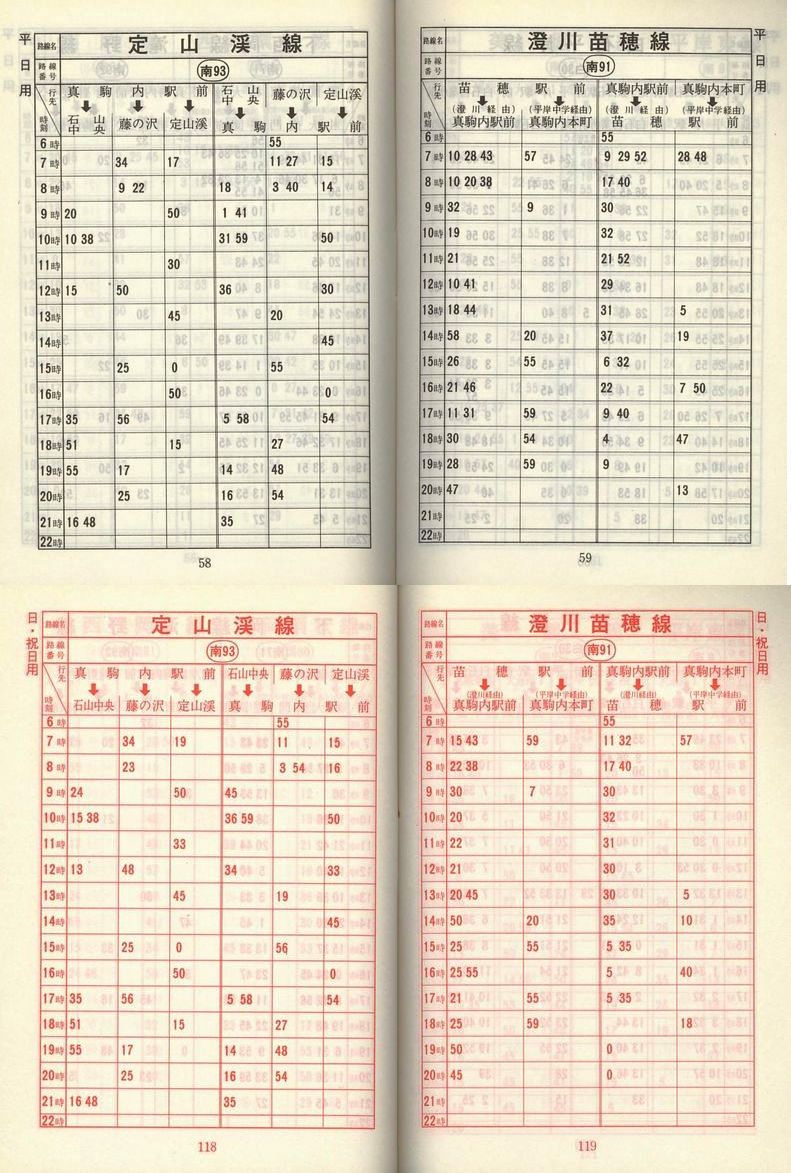 平日用
路線名 定山渓線
路線番号 南93
行先 時刻
真駒内駅前
石山中央 藤の沢 定山渓
石山中央 藤の沢 定山渓
真駒内駅前
6時 55
7時 34 17 11 27 15
8時 9 22 18 3 40 14
9時 20 50 1 41
10時 10 38 31 59 50
11時 30
12時 15 50 36 30
13時 45 20
14時 45
15時 25 0 55
16時 50 0
17時 35 56 5 58 54
18時 51 15 27
19時 55 17 14 48
20時 25 16 54
21時 16 48 35
22時
58
平日用
路線名 澄川苗穂線
路線番号 南91
行先 時刻
苗穂駅前 真駒内駅前 真駒内本町
(澄川経由) (平岸中学経由) (澄川経由) (平岸中学経由)
真駒内駅前 真駒内本町 苗穂駅前
6時 55
7時 10 28 43 57 9 29 52 28 48
8時 10 20 38 17 40
9時 32 9 30
10時 19 32
11時 21 21 52
12時 10 41 29
13時 18 44 31 5
14時 58 20 37 19
15時 26 55 6 32
16時 21 46 22 7 50
17時 11 31 59 9 40
18時 30 54 4 47
19時 28 59 9
20時 47 13
21時
22時
59
日・祝日用
路線名 定山渓線
路線番号 南93
行先 時刻
真駒内駅前 石山中央 藤の沢 定山渓
石山中央 藤の沢 定山渓 真駒内駅前
6時 55
7時 34 19 11 15
8時 23 3 54 16
9時 24 50 45
10時 15 38 36 59 50
11時 33
12時 13 48 34 33
13時 45 19
14時 45
15時 25 0 56
16時 50 0
17時 35 56 5 58 54
18時 51 15 27
19時 55 17 14 48
20時 25 16 54
21時 16 48 35
22時
118
日・祝日用
路線名 澄川苗穂線
路線番号 南91
行先 時刻
苗穂駅前 真駒内駅前 真駒内本町
(澄川経由) (平岸中学経由) (澄川経由) (平岸中学経由)
真駒内駅前 真駒内本町 苗穂駅前
6時 55
7時 15 43 59 11 32 57
8時 22 38 17 40
9時 30 7 30
10時 20 32
11時 22 31
12時 21 30
13時 20 45 30 5
14時 50 20 35 10
15時 25 55 5 35
16時 25 55 5 40
17時 21 55 5 35
18時 25 59 18
19時 50 0
20時 45 0
21時
22時
119